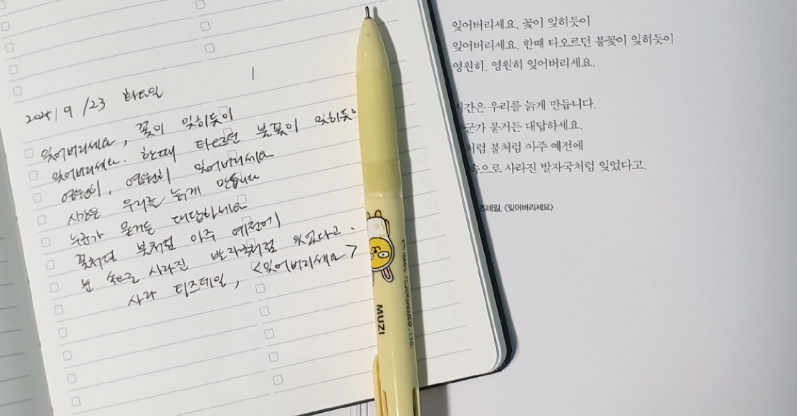 2025/9/23 화요일
잊어버리세요, 꽃이 잊히듯이
잊어버리세요. 한때 타오르던 불꽃이 잊히듯이
영원히, 영원히 잊어버리세요
시간은 우리를 늙게 만듭니다
누군가 묻거든 대답하세요
꽃처럼 불처럼 아주 예전에
눈 속으로 사라진 발자국처럼 잊었다고.
사라 티즈데일, <잊어버리세요>
MUZI
잊어버리세요, 꽃이 잊히듯이
잊어버리세요. 한때 타오르던 불꽃이 잊히듯이
영원히, 영원히 잊어버리세요.
시간은 우리를 늙게 만듭니다.
군가 묻거든 대답하세요.
럼 불처럼 아주 예전에
속으로 사라진 발자국처럼 잊었다고.
즈데일, <잊어버리세요>